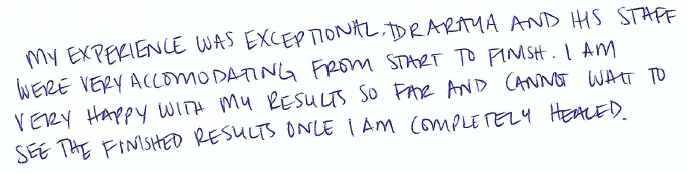 MY EXPERIENCE WAS EXCEPTIONAL. DR ARAYA AND HIS STAFF
WERE VERY ACCOMODATING FROM START TO FINISH. I AM
VERY HAPPY WITH MY RESULTS SO FAR AND CANNOT WAIT TO
SEE THE FINISHED RESULTS ONCE I AM COMPLETELY HEALED.